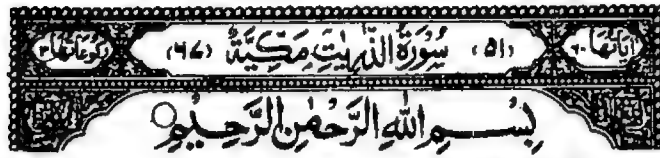 اٰيَاتُهَا ٦٠ (٥١) سُوْرَةُ الذّٰرِيٰتِ مَكِّيَّةٌ (٦٧) رُكُوْعَاتُهَا ٣
بِسْمِ اللهِ الرَّحْمٰنِ الرَّحِيْمِ